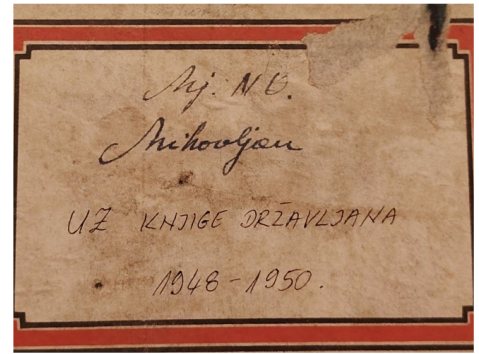 Mj. N O.
Mihovljan
UZ KNJIGE DRŽAVLJANA
1948-1950.